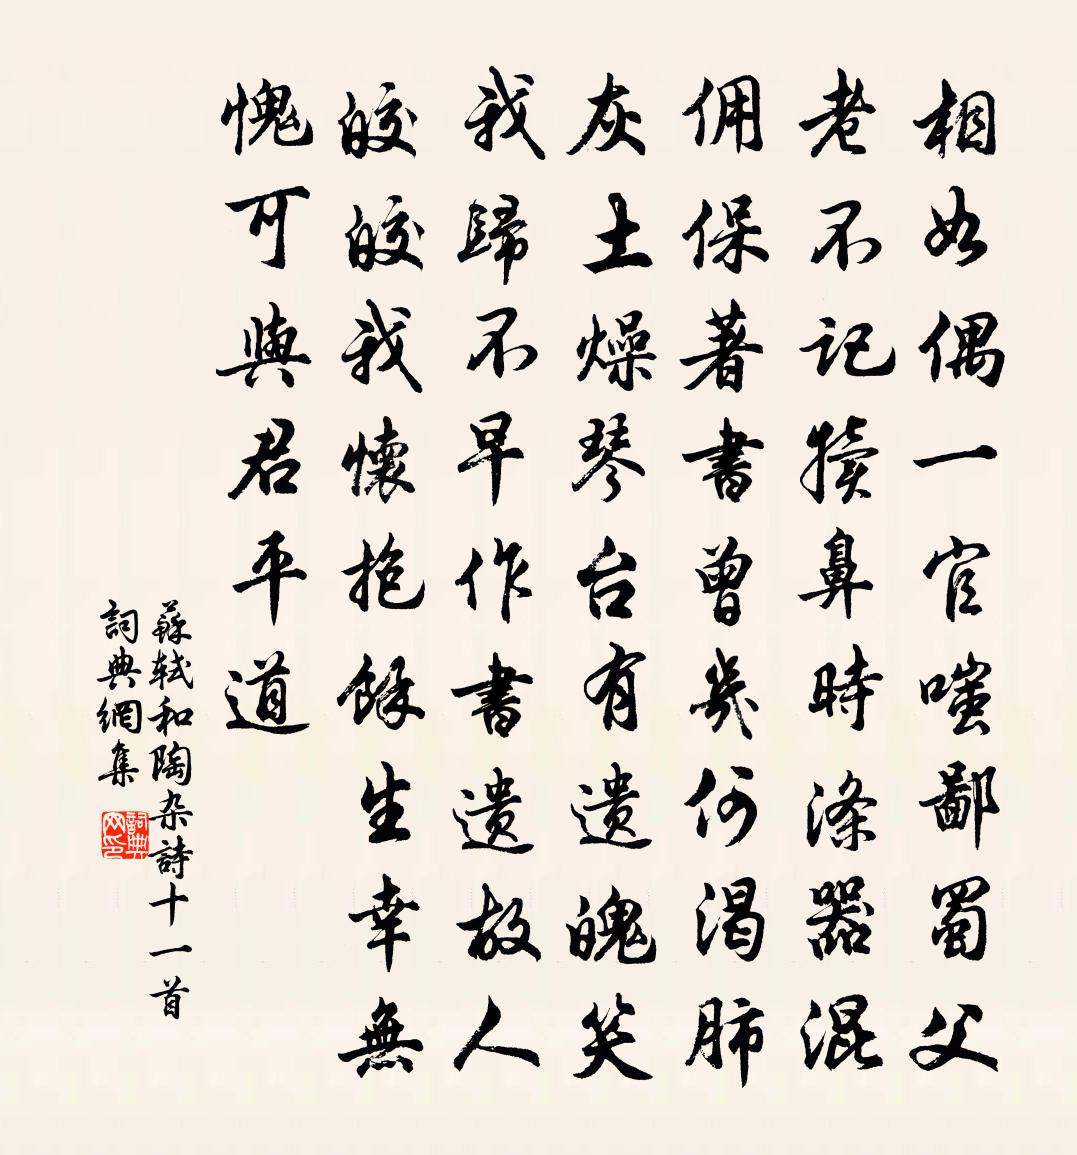 相如偶一官嗤鄙蜀父
老不记犊鼻時滌器混
佣保著書曾幾何渴肺
灰土燥琴台有遗魄笑
我歸不早作書遗故人
皎皎我懷抱餘生幸無
愧可與君平道
蘇轼和陶杂詩十一首
詞典網集
詞典網印